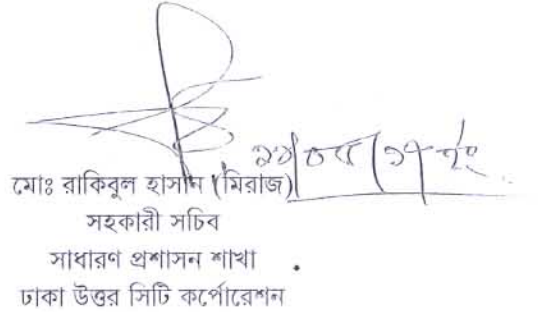 মোঃ রাকিবুল হাসান (মিরাজ)
সহকারী সচিব
সাধারণ প্রশাসন শাখা
ঢাকা উত্তর সিটি কর্পোরেশন